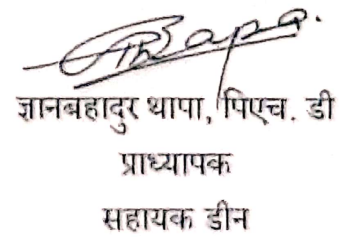 ज्ञानबहादुर थापा, पिएच. डी
प्राध्यापक
सहायक डीन